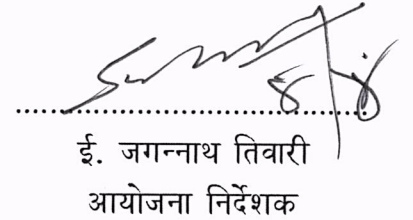 ई. जगन्नाथ तिवारी
आयोजना निर्देशक